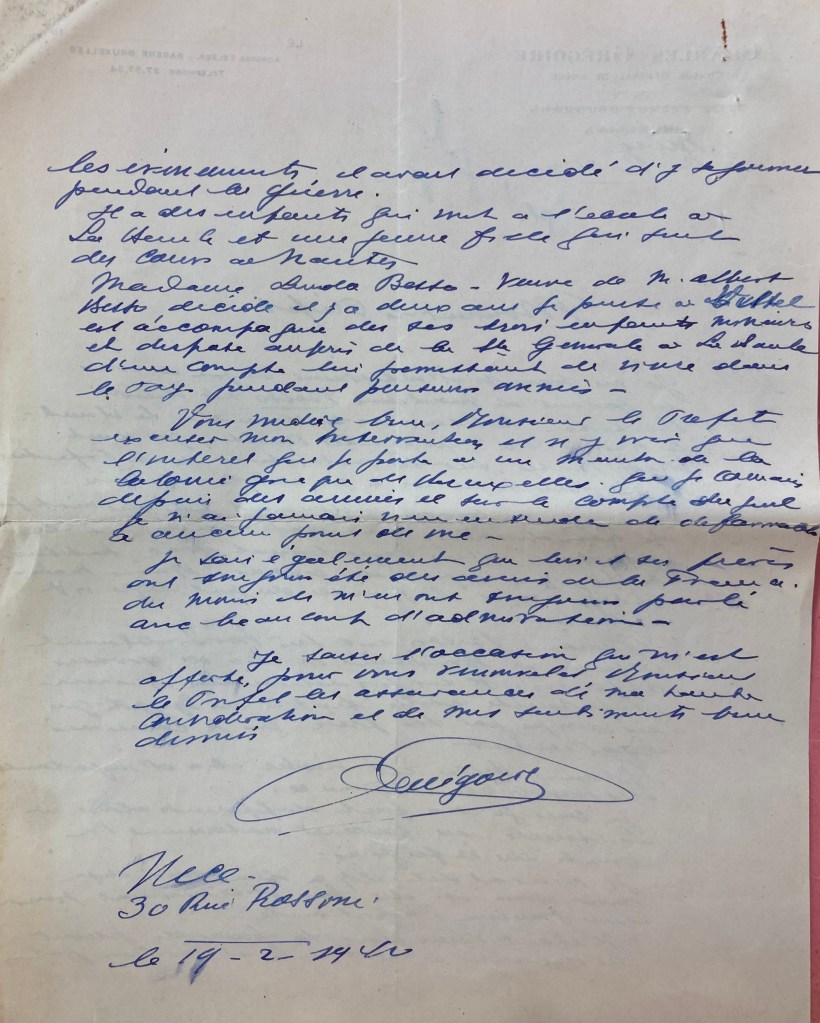 les événements, il avait décidé d'y séjourner
pendant la guerre.
Il a des enfants qui vont a l'école a
La Baule et une jeune fille qui suit
des cours a Nantes
Madame Besso - Veuve de M. Albert
Besso décédé il y a deux ans je pense a
est accompagnée des ses trois enfants mineurs
et dispose auprès de la Sté Générale a La Baule
d'un compte lui permettant de vivre dans
le Pays pendant plusieurs années -
Vous voudrez bien, Monsieur le Préfet
excuser mon intervention et n'y voir que
l'intérêt que je porte a un membre de la
colonie de Bruxelles que je connais
depuis des années et sur le compte duquel
je n'ai jamais rien entendu de défavorable
a aucun point de vue -
Je sais également que lui et ses frères
ont toujours été des amis de la France.
du moins ils m'en ont toujours parlé
avec beaucoup d'admiration -
Je saisis l'occasion qui m'est
offerte, pour vous renouveler Monsieur
le Préfet les assurances de ma haute
considération et de mes sentiments bien
dévoués
Grégoire
Nice -
30 Rue Rossini
le 19 - 2 - 1940